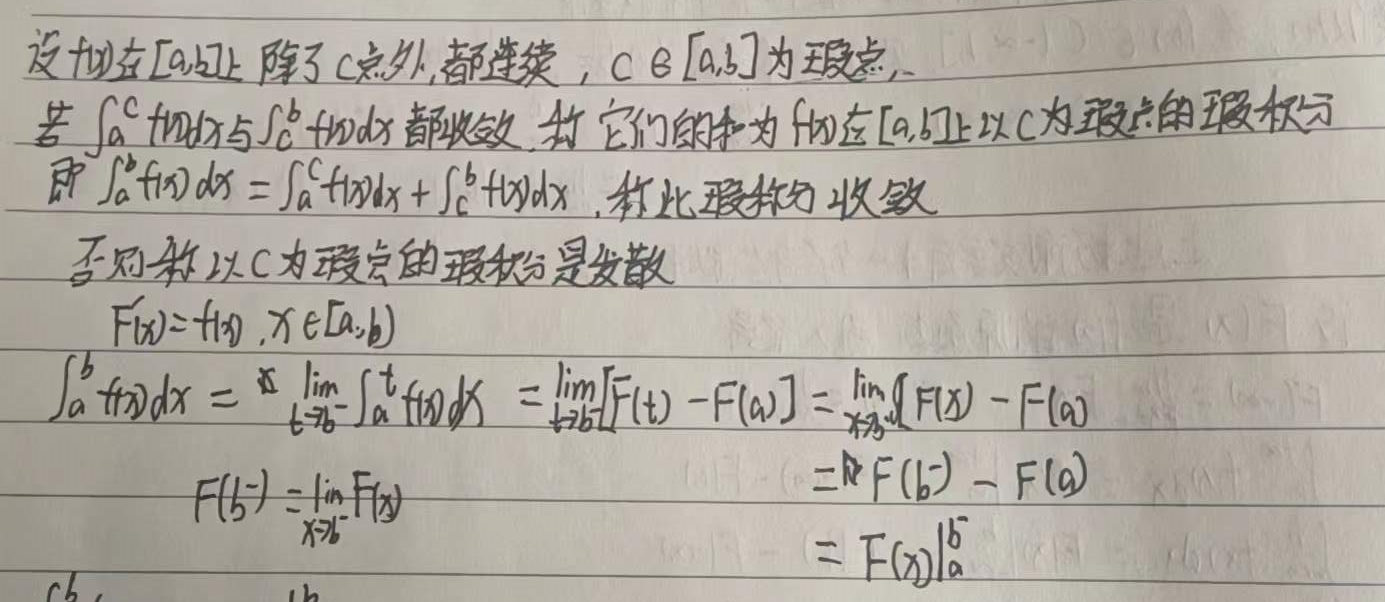 设f(x)在[a,b]上除了C点外,都连续,C∈[a,b]为瑕点,
若∫ₐᶜf(x)dx与∫꜀ᵇf(x)dx都收敛,称它们的和为f(x)在[a,b]上以C为瑕点的瑕积分
即∫ₐᵇf(x)dx=∫ₐᶜf(x)dx+∫꜀ᵇf(x)dx,称此瑕积分收敛
否则称以C为瑕点的瑕积分是发散
F'(x)=f(x),x∈[a,b)
∫ₐᵇf(x)dx= lim t→b⁻ ∫ₐᵗf(x)dx = lim t→b⁻ [F(t)-F(a)] = lim x→b⁻ F(x)-F(a)
= F(b⁻)-F(a)
F(b⁻)= lim x→b⁻ F(x)
= F(x)|ₐᵇ⁻